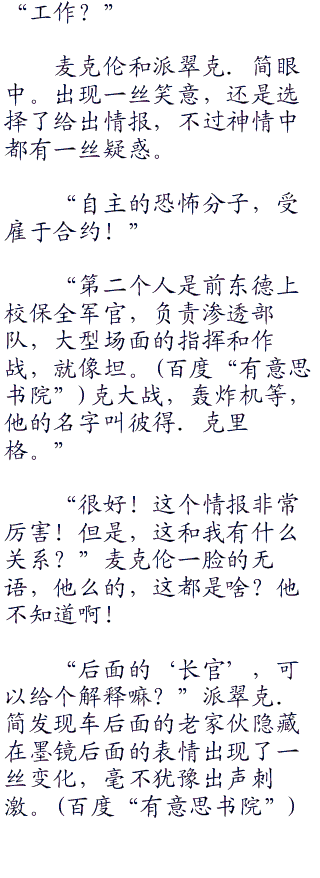 “工作？”
麦克伦和派翠克．简眼
中。出现一丝笑意，还是选
择了给出情报，不过神情中
都有一丝疑惑。
“自主的恐怖分子，受
雇于合约！”
“第二个人是前东德上
校保全军官，负责渗透部
队，大型场面的指挥和作
战，就像坦。(百度“有意思
书院”)克大战，轰炸机等，
他的名字叫彼得．克里
格。”
“很好！这个情报非常
厉害！但是，这和我有什么
关系？”麦克伦一脸的无
语，他么的，这都是啥？他
不知道啊！
“后面的‘长官’，可
以给个解释嘛？”派翠克．
简发现车后面的老家伙隐藏
在墨镜后面的表情出现了一
丝变化，毫不犹豫出声刺
激。(百度“有意思书院”)